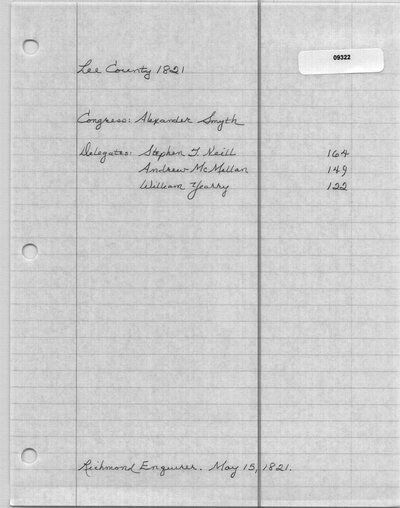 09322
Lee County 1821
Congress: Alexander Smyth
Delegates: Stephen T. Neill 164
Andrew McMillan 149
William Yeary 122
Richmond Enquirer. May 15, 1821.